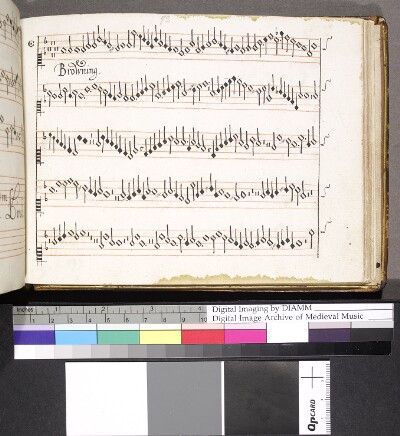 Browning.
Inches 1 2 3 4
1 2 3 4 5 6 7 8 9 10
Digital Imaging by DIAMM
Digital Image Archive of Medieval Music
QPCARD